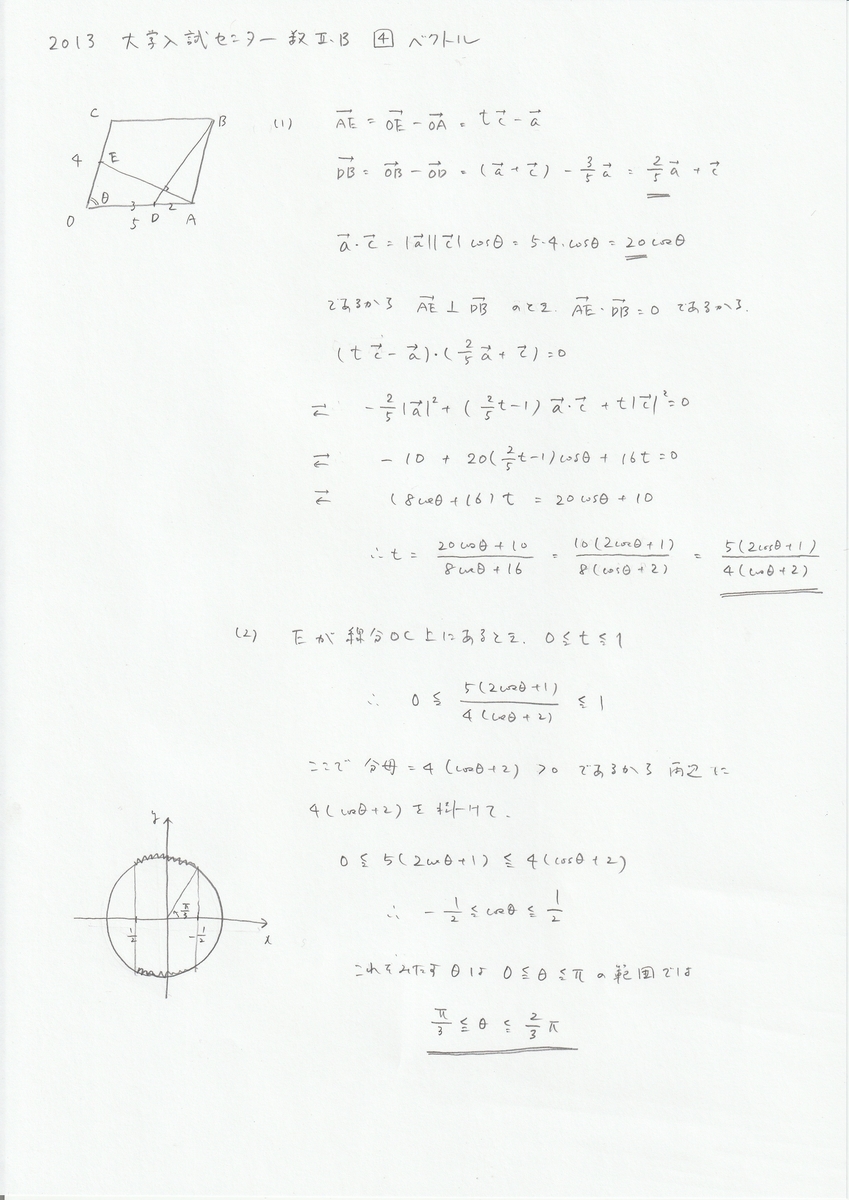 2013 大学入試センター数Ⅱ・B 4 ベクトル
C B
4 E
θ
O 3 D 2 A
5
(1) AE→ = OE→ - OA→ = tc→ - a→
DB→ = OB→ - OD→ = (a→ + c→) - 3/5 a→ = 2/5 a→ + c→
a→・c→ = |a→||c→| cosθ = 5・4・cosθ = 20cosθ
であるから AE→ ⊥ DB→ のとき、AE→・DB→ = 0 であるから、
(tc→ - a→)・(2/5 a→ + c→) = 0
⇄ -2/5|a→|² + (2/5 t - 1) a→・c→ + t|c→|² = 0
⇄ -10 + 20(2/5 t - 1)cosθ + 16t = 0
⇄ (8cosθ + 16)t = 20cosθ + 10
∴ t = (20cosθ + 10)/(8cosθ + 16) = 10(2cosθ + 1)/8(cosθ + 2) = 5(2cosθ + 1)/4(cosθ + 2)
(2) Eが線分OC上にあるとき、0 ≦ t ≦ 1
∴ 0 ≦ 5(2cosθ + 1)/4(cosθ + 2) ≦ 1
ここで 分母 = 4(cosθ + 2) > 0 であるから 両辺に
4(cosθ + 2) を掛けて、
0 ≦ 5(2cosθ + 1) ≦ 4(cosθ + 2)
∴ -1/2 ≦ cosθ ≦ 1/2
これをみたす θは 0 ≦ θ ≦ π の範囲では
π/3 ≦ θ ≦ 2/3 π
y
π/3
1/2 -1/2 x